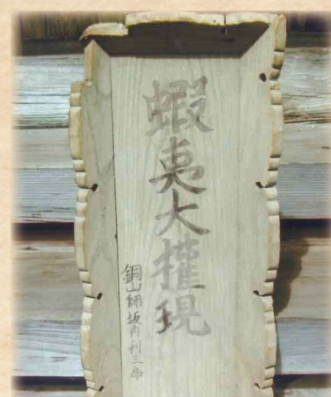 蝦夷大権現
銅山師坂内利三郎